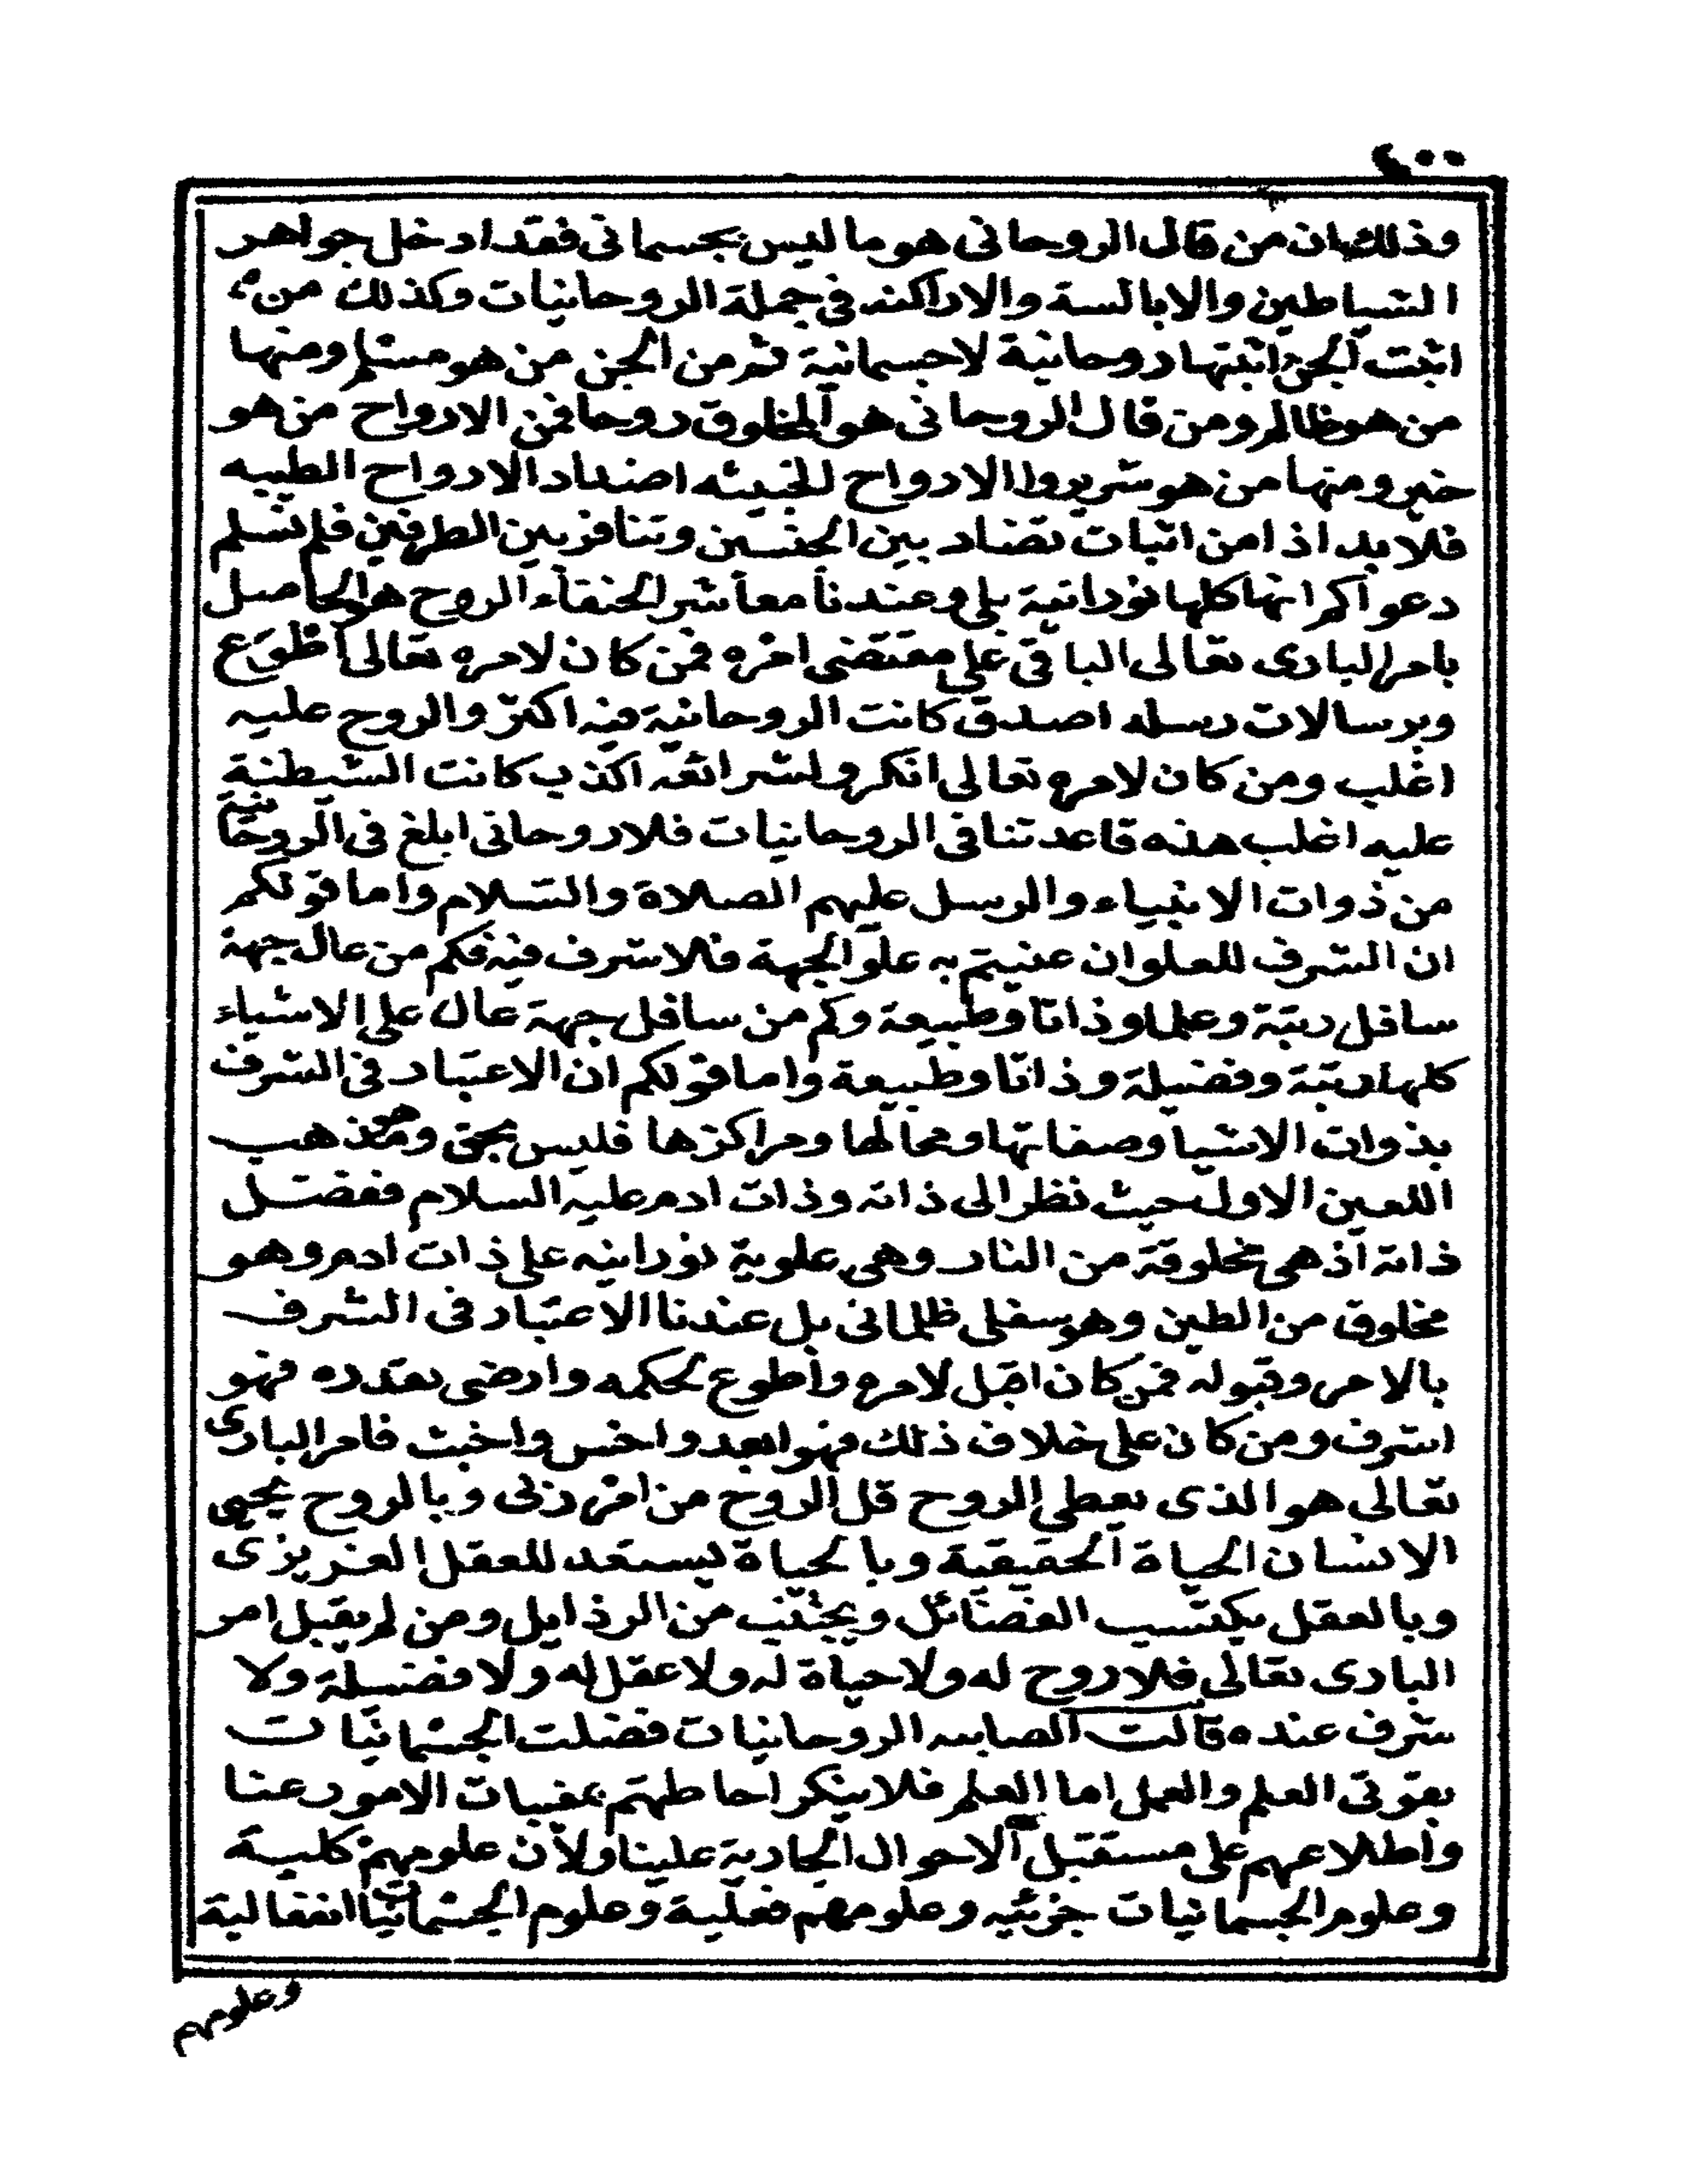 ٤٠٠
وذلك ان من قال الروحانى هو ما ليس بجسمانى فقد ادخل جواهر
الشياطين والابالسة والاراكنه فى جملة الروحانيات وكذلك من
اثبت الجن اثبتها روحانية لا جسمانية ثم من الجن من هو مسلم ومنها
من هو ظالم ومن قال الروحانى هو المخلوق روحا فمن الارواح من هو
خير ومنها من هو شرير والارواح الخبيثه اضداد الارواح الطيبه
فلا بد اذا من اثبات تضاد بين الجنسين وتنافر بين الطرفين فلم نسلم
دعواكم انها كلها نورانية بلى وعندنا معاشر الحنفاء الروح هو الحاصل
بامر البارى تعالى الباقى على مقتضى امره فمن كان لامره تعالى اطوع
وبرسالات رسله اصدق كانت الروحانية فيه اكثر والروح عليه
اغلب ومن كان لامره تعالى انكر ولشرائعه اكذب كانت الشيطنة
عليه اغلب هذه قاعدتنا فى الروحانيات فلا روحانى ابلغ فى الروحانية
من ذوات الانبياء والرسل عليهم الصلاة والسلام واما قولكم
ان الشرف للعلو ان عنيتم به علو الجهة فلا شرف فيه فكم من عال جهة
سافل رتبة وعلما وذاتا وطبيعة وكم من سافل جهة عال على الاشياء
كلها رتبة وفضيلة وذاتا وطبيعة واما قولكم ان الاعتبار فى الشرف
بذوات الاشيا وصفاتها ومحالها ومراكزها فليس بحق وهو مذهب
اللعين الاول حيث نظر الى ذاته وذات ادم عليه السلام ففضل
ذاته اذ هى مخلوقة من النار وهى علوية نورانيه على ذات ادم وهو
مخلوق من الطين وهو سفلى ظلمانى بل عندنا الاعتبار فى الشرف
بالامر وقبوله فمن كان اقبل لامره واطوع لحكمه وارضى بقدره فهو
اشرف ومن كان على خلاف ذلك فهو ابعد واخس واخبث فامر البارى
تعالى هو الذى يعطى الروح قل الروح من امر ربى وبالروح يحيى
الانسان الحياة الحقيقية وبالحياة يستعد للعقل الغريزى
وبالعقل يكتسب الفضائل ويجتنب من الرذايل ومن لم يقبل امر
البارى تعالى فلا روح له ولا حياة له ولا عقل له ولا فضيلة ولا
شرف عنده قالت الصابيه الروحانيات فضلت الجسمانيات
بقوتى العلم والعمل اما العلم فلا ينكر احاطهتم بمغيبات الامور عنا
واطلاعهم على مستقبل الاحوال الجارية علينا ولان علومهم كلية
وعلوم الجسمانيات جزئيه وعلومهم فعلية وعلوم الجسمانيات انفعالية
وعلومهم